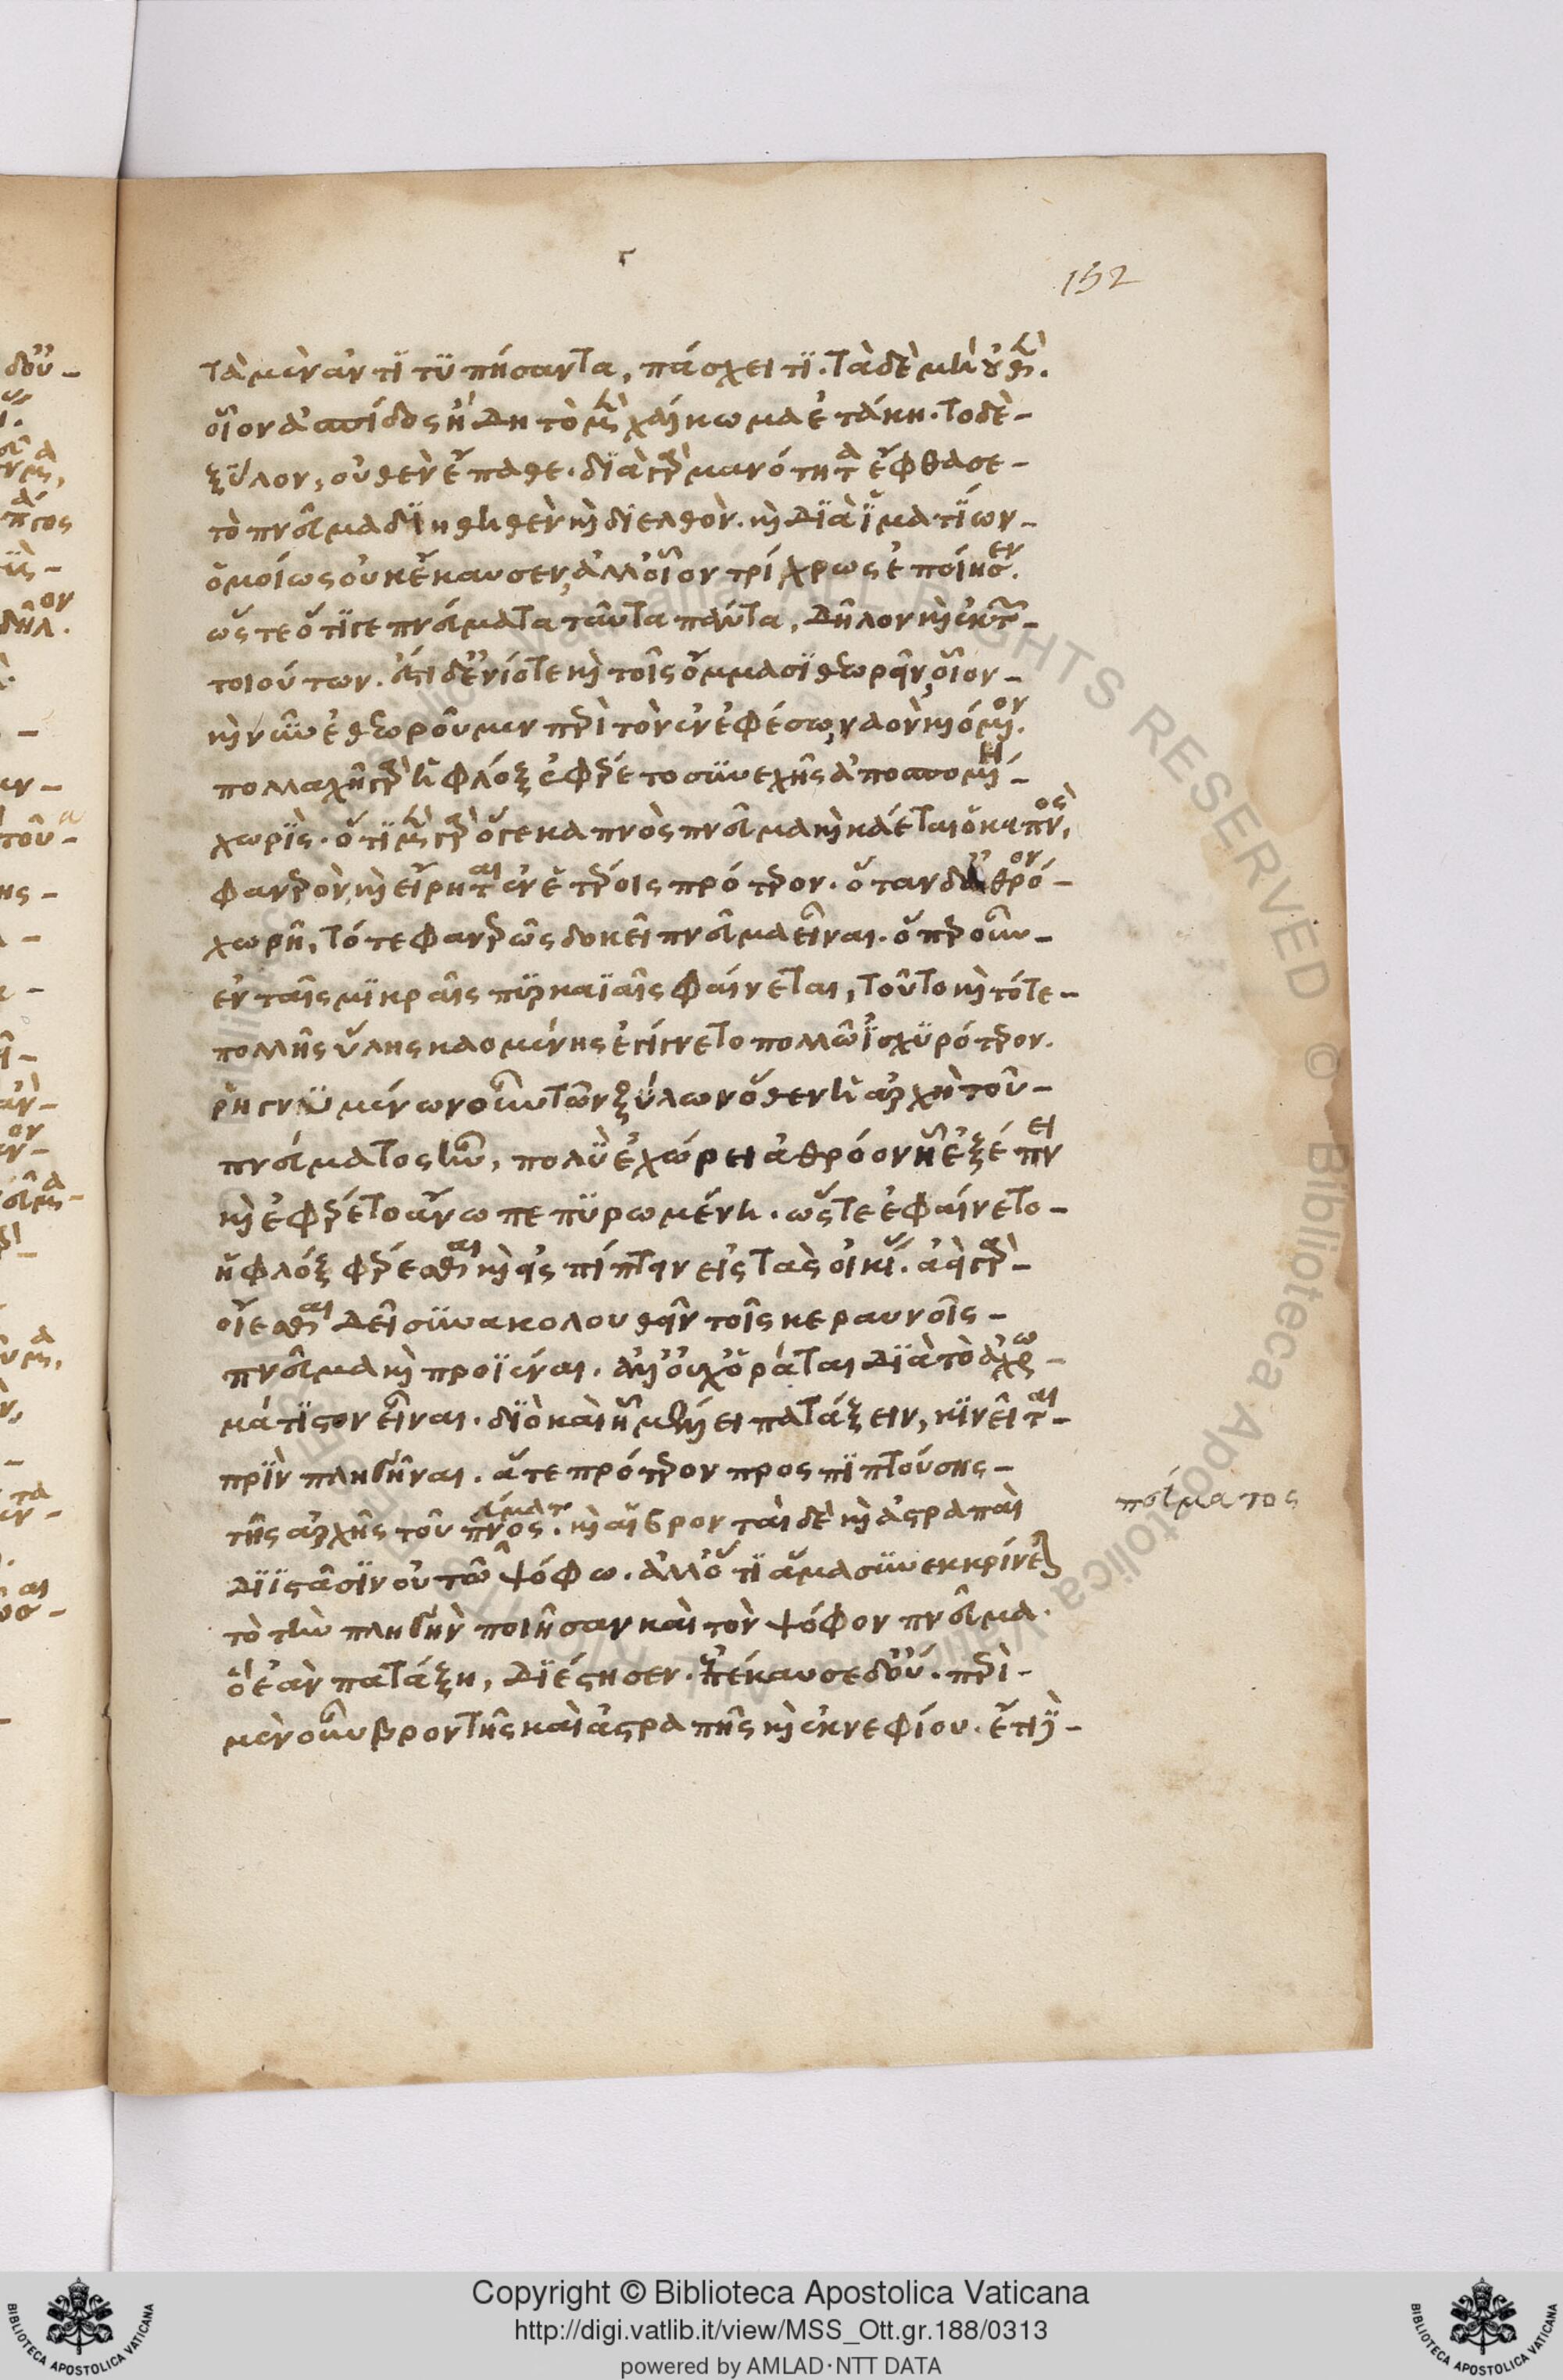 152
τὰ μὲν ἀντιτυπήσαντα, πάσχει τι. τὰ δὲ μὴ οὐθέν.
οἷον ἀσπίδος ἤδη τὸ μὲν χάλκωμα ἐτάκη. τὸ δὲ
ξύλον, οὐθὲν ἔπαθε. διὰ γὰρ μανότητα ἔφθασε
τὸ πνεῦμα διηθηθὲν καὶ διελθόν. καὶ διὰ ἱματίων
ὁμοίως οὐκ ἔκαυσεν, ἀλλ' οἷον τρίχρως ἐποίησεν.
ὥστε ὅτι γε πνεύματα ταῦτα πάντα, δῆλον καὶ ἐκ τῶν
τοιούτων. ἔστι δ' ἐνίοτε καὶ τοῖς ὄμμασι θεωρεῖν, οἷον
καὶ νῦν ἐθεωροῦμεν περὶ τὸν ἐν ἐφέσω ναὸν καιόμενον.
πολλαχῆ γὰρ ἡ φλὸξ ἐφέρετο συνεχὴς ἀποσπομένη
χωρίς. ὅτι μὲν γὰρ ὅ γε καπνὸς πνεῦμα καὶ κάεται ὁ καπνός,
φανερὸν, καὶ εἴρηται ἐν ἑτέροις πρότερον. ὅταν δ' ἀθρόον
χωρῆ, τότε φανερῶς δοκεῖ πνεῦμα εἶναι. ὅπερ οὖν
ἐν ταῖς μικραῖς πυρκαϊαῖς φαίνεται, τοῦτο καὶ τότε
πολλῆς ὕλης καομένης ἐγίγνετο πολλῶ ἰσχυρότερον.
ῥηγνυμένων οὖν τῶν ξύλων ὅθεν ἡ ἀρχὴ τοῦ
πνεύματος ἦν, πολὺ ἐχώρει ἀθρόον ἢ ἐξέπνει
καὶ ἐφέρετο ἄνω πεπυρωμένη. ὥστε ἐφαίνετο
ἡ φλὸξ φέρεσθαι καὶ εἰσπίπτειν εἰς τὰς οἰκίας. ἀεὶ γὰρ
οἴεσθαι δεῖ συνακολουθεῖν τοῖς κεραυνοῖς
πνεῦμα καὶ προϊέναι. ἀλλ' οὐχ ὁρᾶται διὰ τὸ ἀχρω
μάτιστον εἶναι. διὸ καὶ ἧ μέλλει πατάξειν, κινεῖται
πρὶν πληγῆναι. ἅτε πρότερον προσπιπτούσης
τῆς ἀρχῆς τοῦ πν<unclear></unclear>ος. καὶ αἱ βρονταὶ δὲ καὶ ἀστραπαὶ
διϊστᾶσιν οὐ τῶ ψόφω. ἀλλ' ὅτι ἅμα συνεκκρίνεται
τὸ τὴν πληγὴν ποιῆσαν καὶ τὸν ψόφον πνεῦμα.
ὃ ἐὰν πατάξη, διέστησεν. ἐπέκαυσε δ' οὔ. περὶ
μὲν οὖν βροντῆς καὶ ἀστραπῆς καὶ ἐκνεφίου. ἔτι
πνεύματος
Copyright © Biblioteca Apostolica Vaticana
http://digi.vatlib.it/view/MSS_Ott.gr.188/0313
powered by AMLAD·NTT DATA